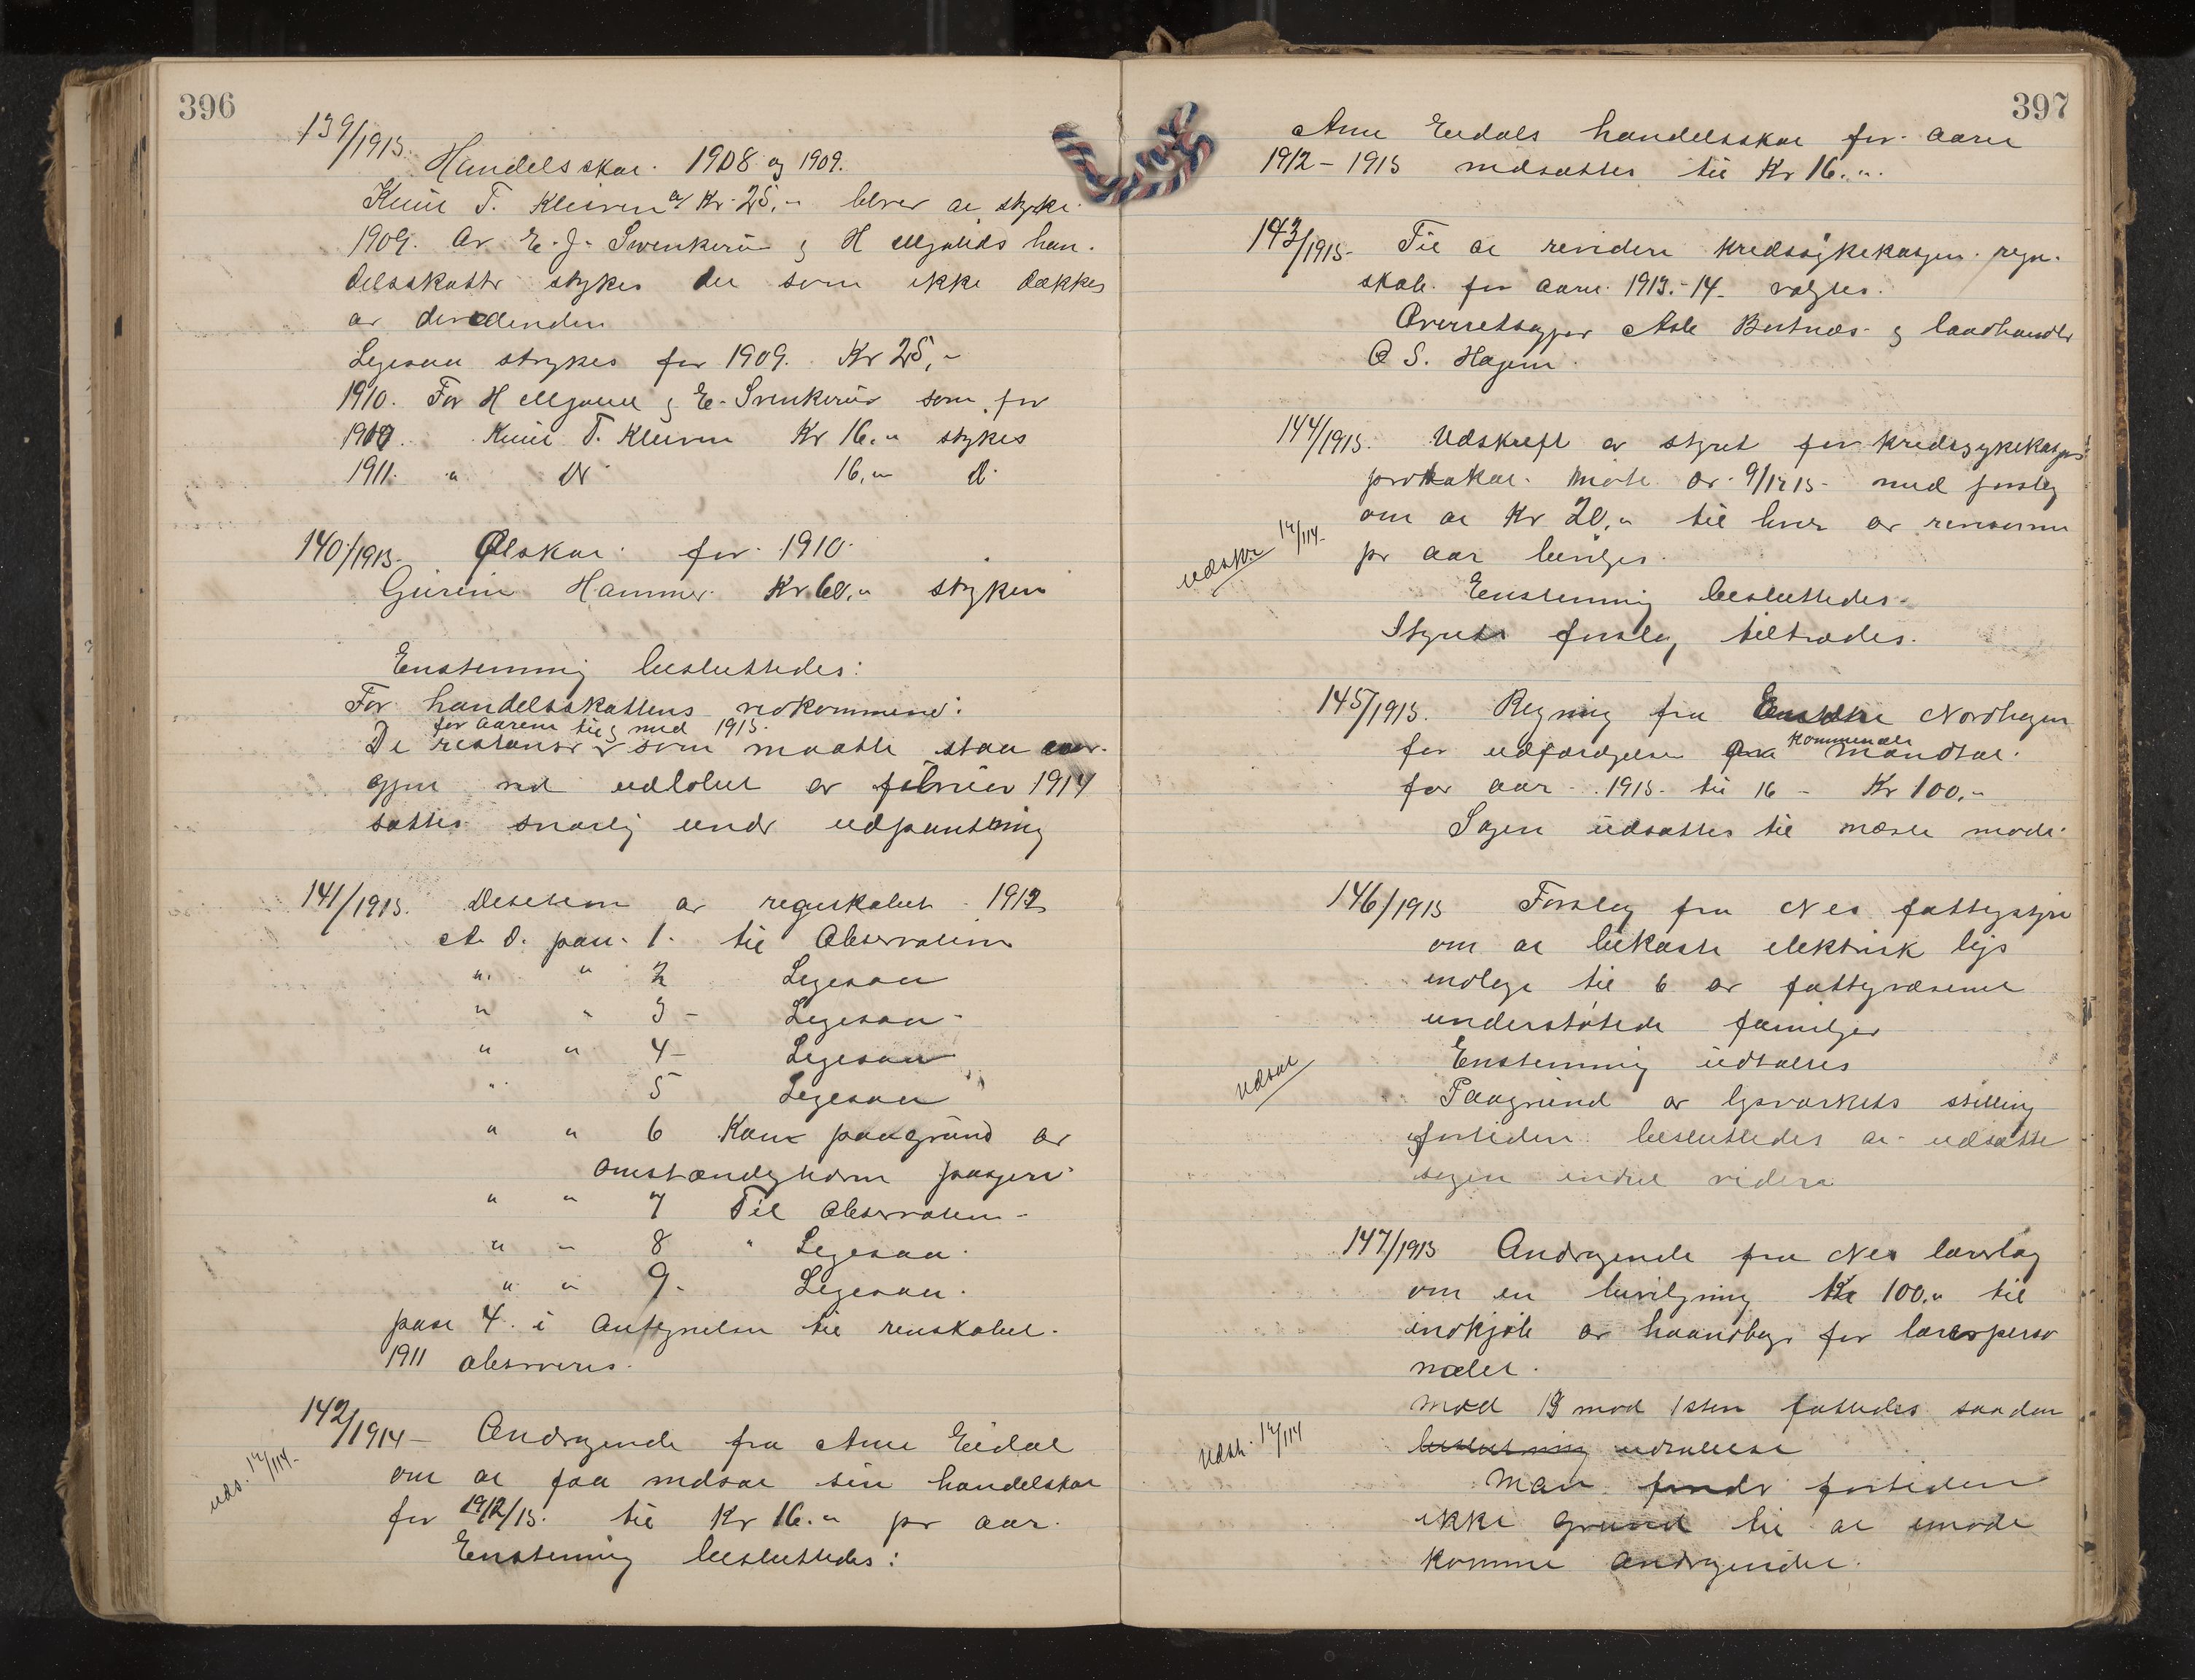 396
139/1913.
Handelsskat. 1908 og 1909.
Knut T. Kleiven a/ Kr. 25,- blver at stryke.
1909. Av E. J. Svenkerud og H Mjølids han-
delsskatte strykes det som ikke dækkes
av devedenden
Ligesaa strykes for 1909. Kr 25,-
1910. For H Mjølid og E. Svenkerud som for
1909. Knut T. Kleiven Kr 16,- strykes
1911. " Do 16,- do
140/1913. Ølskat for 1910.
Gurine Hammer Kr 60,- strykes
Enstemmig besluttedes:
For handelsskattens vedkommende:
for aarene til og med 1913.
De restanser som maatte staa uav-
gjort ved udløbet av februar 1914
sættes snarlig under udpantning
141/1913. Desision av regnskabet 1912
A. D. pan. 1. til Observation
" " 2 Ligesaa
" " 3 - Ligesaa -
" " 4 - Ligesaa
" 5 Ligesaa
" " 6 Kan paagrund av
omstændigheterne passere
" " 7 Til Observation -
" " 8 " Ligesaa.
" " 9. Ligesaa.
post 4. i Antegnelsen til renskabet.
1911 observeres.
142/1914 - Andragende fra Arne Eidal
uds. 12/1 14 -
om at faa nedsat sin handelskat
for 1912/13. til Kr 16.- pr aar.
Enstemmig besluttedes:
397
Arne Eidals handelsskat for aarene
1912 - 1913 nedsættes til Kr 16.-.
143/1913 - Til at revidere kredssykekassens regn-
skab for aarene 1913.-14 - valgtes.
Overretssagfør Asle Bentnæs og landhandler
O S. Hagen.
144/1913. Udskrift av styret for kredssykekassens
protokol. møte av 9/12 13 - med forslag
om at Kr 20,- til hver av revisorerne
udskr. 12/1 14 -
pr aar beviljes.
Enstemmig besluttedes -
Styrets forslag tiltrædes.
145/1913. Regning fra Endre Nordhagen
for udfærdigelse kommunale mandtal.
for aar 1913 - til 16 - Kr 100,-
Sagen udsættes til næste møde.
146/1913 Forslag fra Nes fattigstyre
om at bekoste elektrisk lys
indlagt til 6 av fattigvæsenet
understøtede familjer
Enstemmig udtaltes
udsat
Paagrund av lysverkets stilling
fortiden besluttedes at udsætte
sagen indtil videre
147/1913 Andragende fra Nes lærerlag
om en beviljning Kr 100.- til
indkjøb av haandbøger for lærerperso
nalet.
Mod 13 mod 1 sten fattedes saadan
Udskr. 12/1 14
beslutning udtalelse
Man finder fortiden
ikke grund til at imøde
komme andragendet.